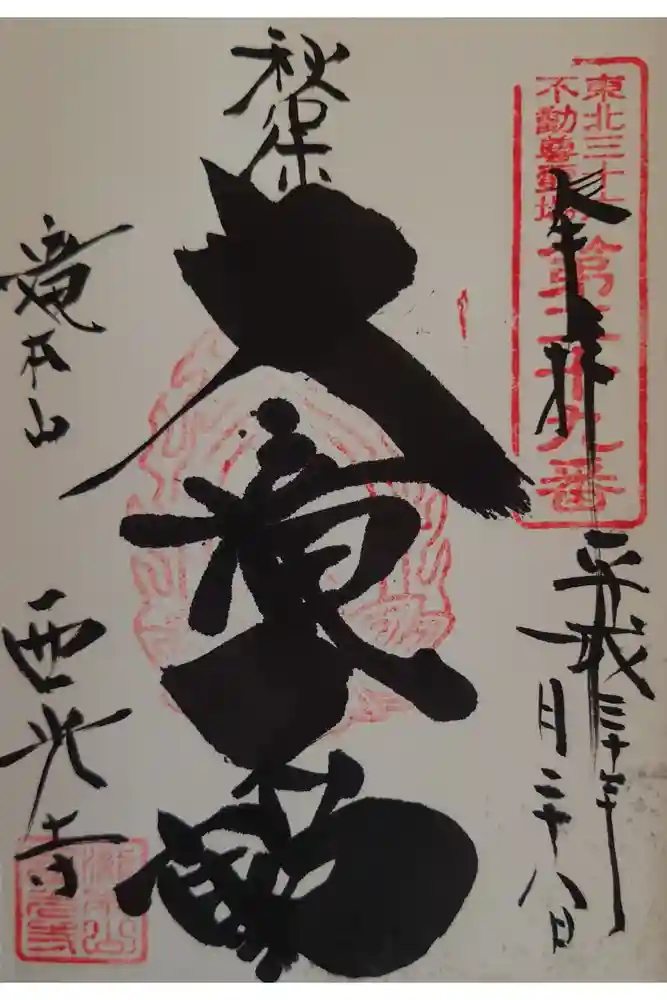 東北三十六
不動尊霊場
第二十九番
奉拝
平成三十年
月二十八日
秋保
大滝不動
滝本山
西光寺